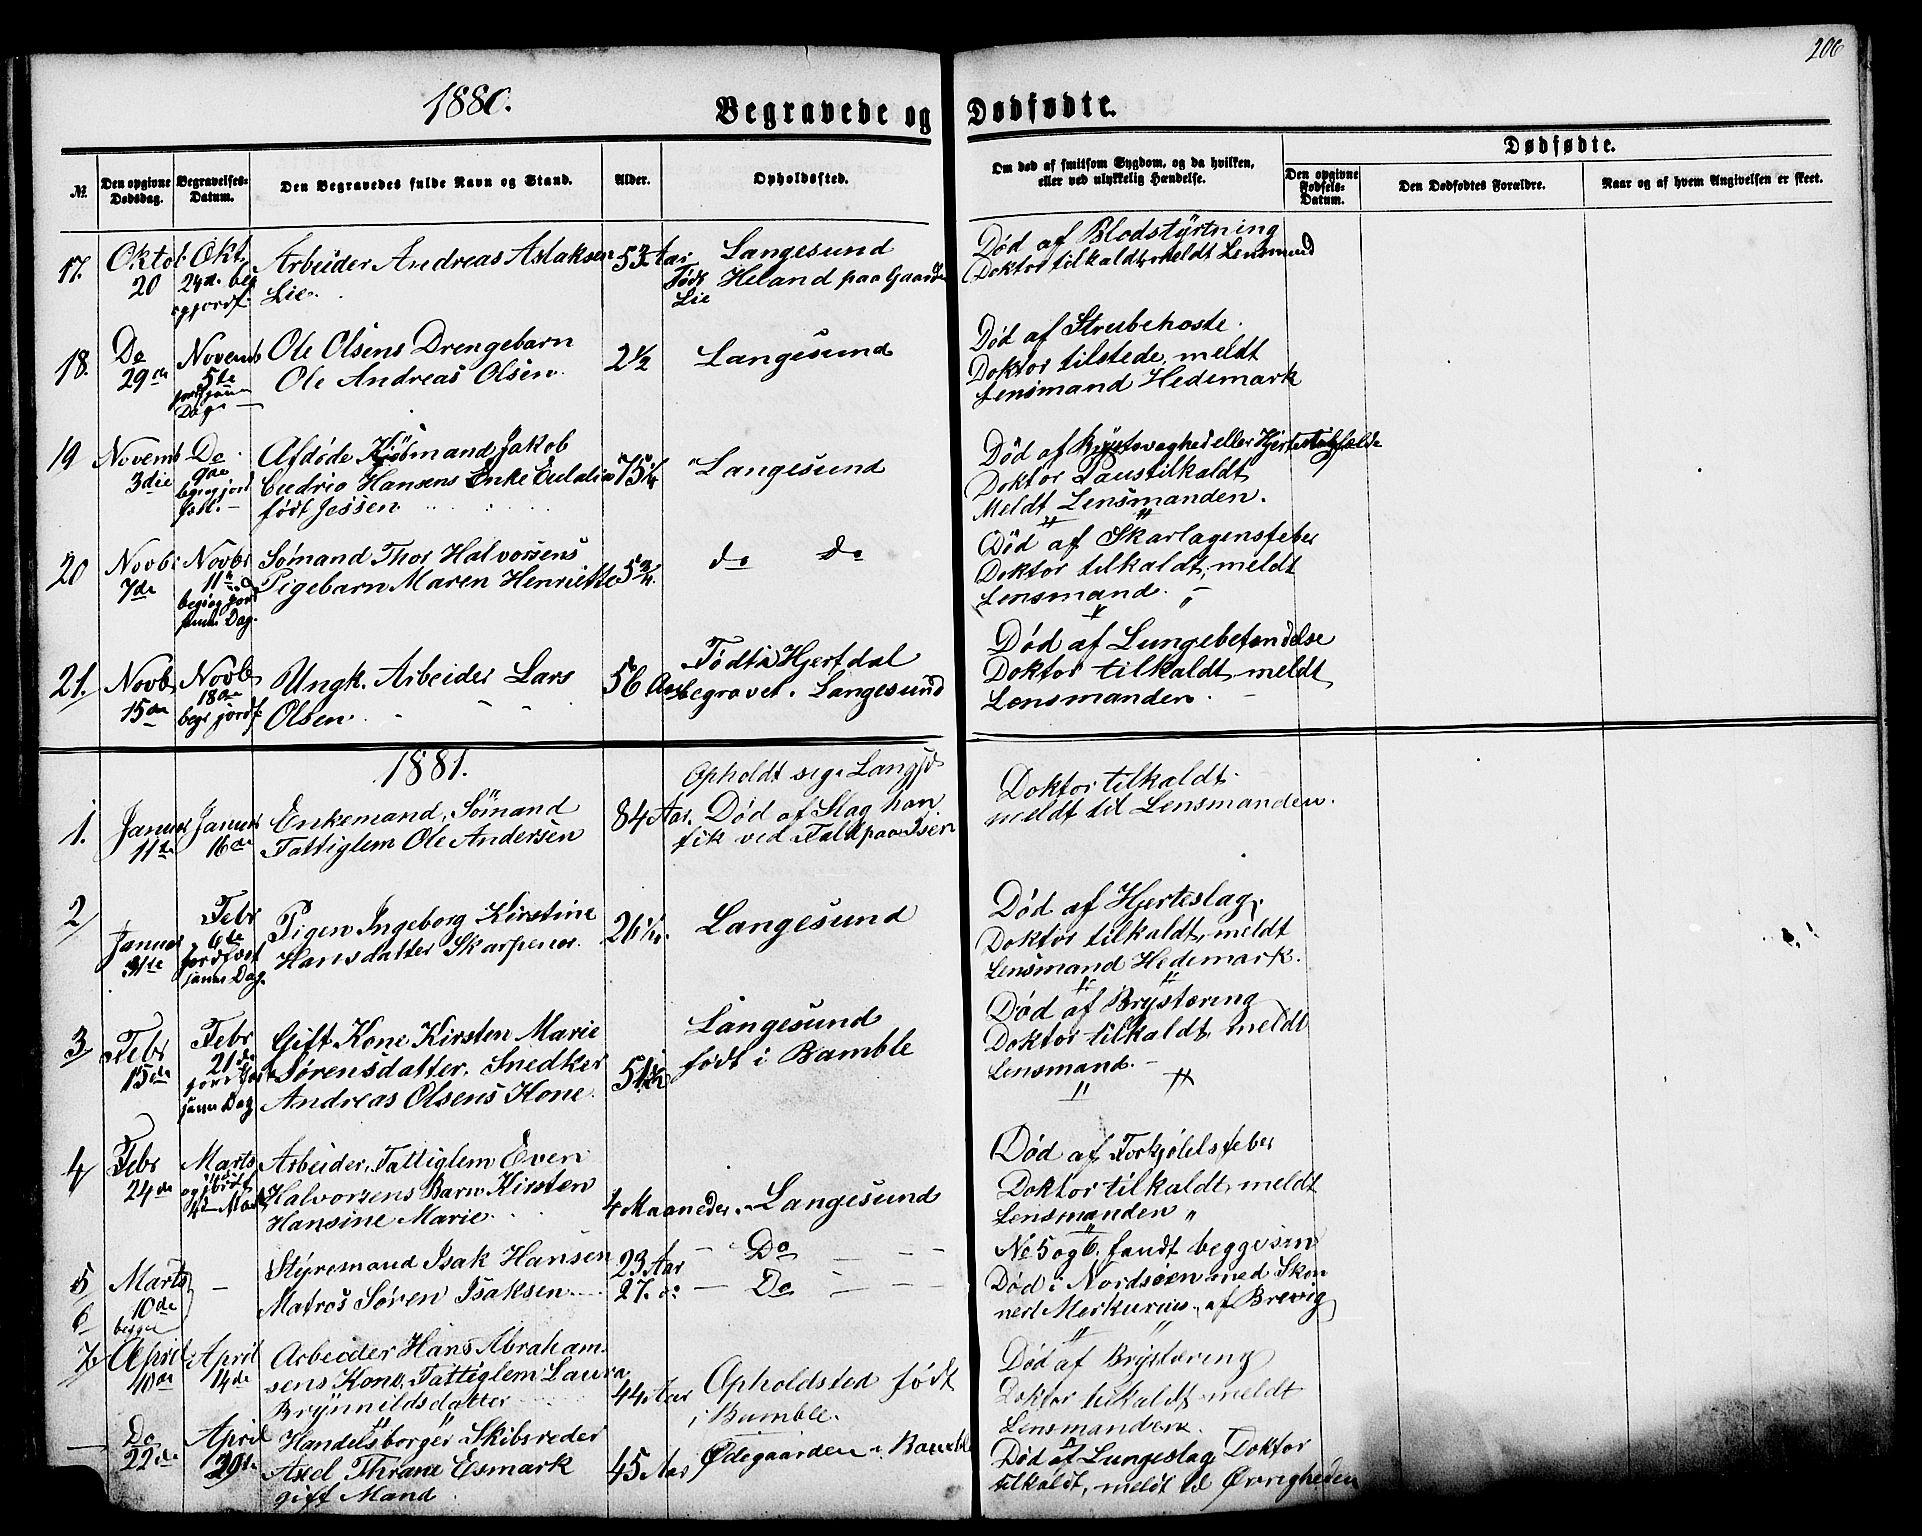 206
1880.
Begravede og Dødfødte.
Dødfødte.
№
Den opgivne Dødsdag.
Begravelses-Datum.
Den Begravedes fulde Navn og Stand.
Alder.
Opholdssted.
Om død af smitsom Sygdom, og da hvilken, eller ved ulykkelig Hændelse.
Den opgivne Fødsels-Datum.
Den Dødfødtes Forældre.
Naar og af hvem Angivelsen er skeet.
17. Oktob 20
Okt. 24de
Arbeider Andreas Aslaksen
Lie
53 Aar
Langesund
Født Heland paa Gaarden
Lie
Død af Blodstyrtning
Doktor tilkaldt meldt Lensmand
18. Do 29de
Novemb 5te
Ole Olsens Drengebarn
Ole Andreas Olsen
2½
Langesund
Død af Strubehoste.
Doktor tilstede, meldt
Lensmand Hedemark
19 Novemb 3die
Do 9de
Afdøde Kjøbmand Jakob
Hansens Enke Eulalia
født Jessen
75¼
Langesund
Død af Brystsvaghed eller Hjertetilfælde
Doktor Paus tilkaldt
Meldt Lensmanden.
20 Novbr 7de
Novbr 11te
Sømand Thor Halvorsens
Pigebarn Maren Henriette
5¾
do do
Død af Skarlagensfeber
Doktor tilkaldt, meldt
Lensmand.
21. Novb 15de
Novb 18de
begr jordf
Ungk. Arbeider Lars
Olsen
56 Aar
Født i Hjertdal
begravet. Langesund
Død af Lungebetændelse
Doktor tilkaldt, meldt
Lensmanden.
1881.
1. Januar 11te
Januar 16de
Enkemand, Sømand
Fattiglem Ole Andersen
84 Aar.
Opholdt sig i Langsd
Død af Slag han
fik ved Fald paa Isen
Doktor tilkaldt
meldt til Lensmanden.
2 Januar 31te
Febr 6te
jordfæst
samme Dag.
Pigen Ingeborg Kirstine
Hansdatter Skarpenor
26
Langesund
Død af Hjerteslag,
Doktor tilkaldt, meldt
Lensmand Hedemark.
3 Febr 15de
Febr 21de
samme Dag
Gift Kone Kirsten Marie
Sørensdatter. Snedker
Andreas Olsens Kone.
51½
Langesund
født i Bamble
Død af Brystæring
Doktor tilkaldt, meldt
Lensmand.
4 Febr 24de
Marts
Arbeider, Fattiglem Even
Halvorsens Barn Kirsten
Hansine Marie
4 Maaneder
Langesund
Død af Forkjølelsfeber
Doktor tilkaldt, meldt
Lensmanden
5 Marts
6 10de
begge
Styremand Isak Hansen
Matros Søren Isaksen
23 Aar
27. do
Do
Do
No 5 og 6. fandt begge sin
Død i Nordsøen med Skon
nert Merkurius af Brevig
7 April 10de
April 14de
Arbeider Hans Abraham
sens Kone, Fattiglem Laura
Brynnildsdatter
44 Aar
Opholdsted født
i Bamble.
Død af Brystæring
Doktor tilkaldt meldt
Lensmanden.
Do 22de
April 29de
Handelsborger Skibsreder
Axel Thrane Esmark
gift Mand
45 Aar
Ødegaarden i Bamble
Død af Lungeslag, Doktor
tilkaldt, meldt til Øvrigheden